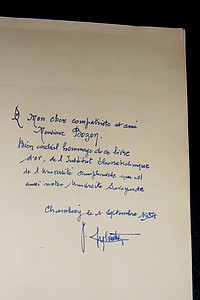 A Mon cher compatriote et ami
Monsieur Bozon.
Bien cordial hommage de ce livre
d'or, de l'Institut Electrotechnique
de l'Université Grenobloise qui est
aussi notre Université Savoyarde
Chambéry le 1 Septembre 1954